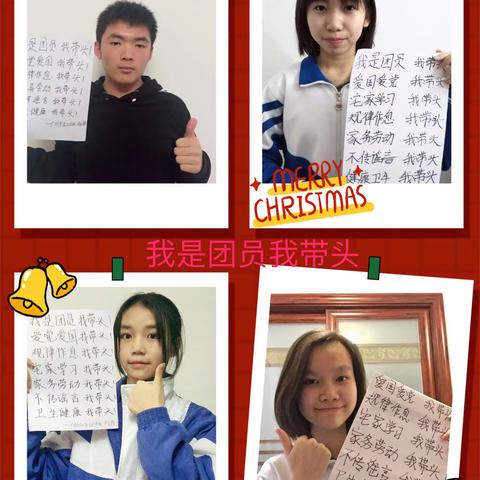 是团员 我带头!
党爱国 我带头!
律作息 我带头!
务劳动 我带头!
我带头!
健康 我带头!
我是团员 我带头
爱国爱党 我带头
宅家学习 我带头
规律作息 我带头
家务劳动 我带头
不传谣言 我带头
健康卫生 我带头
MERRY
CHRISTMAS
我是团员我带头
我是团员 我带头!
爱党爱国 我带头!
规律作息 我带头!
宅家学习 我带头!
家务劳动 我带头!
不传谣言 我带头!
卫生健康 我带头!
爱国爱党 我带头
规律作息 我带头
宅家学习 我带头
家务劳动 我带头
不传谣言 我带头